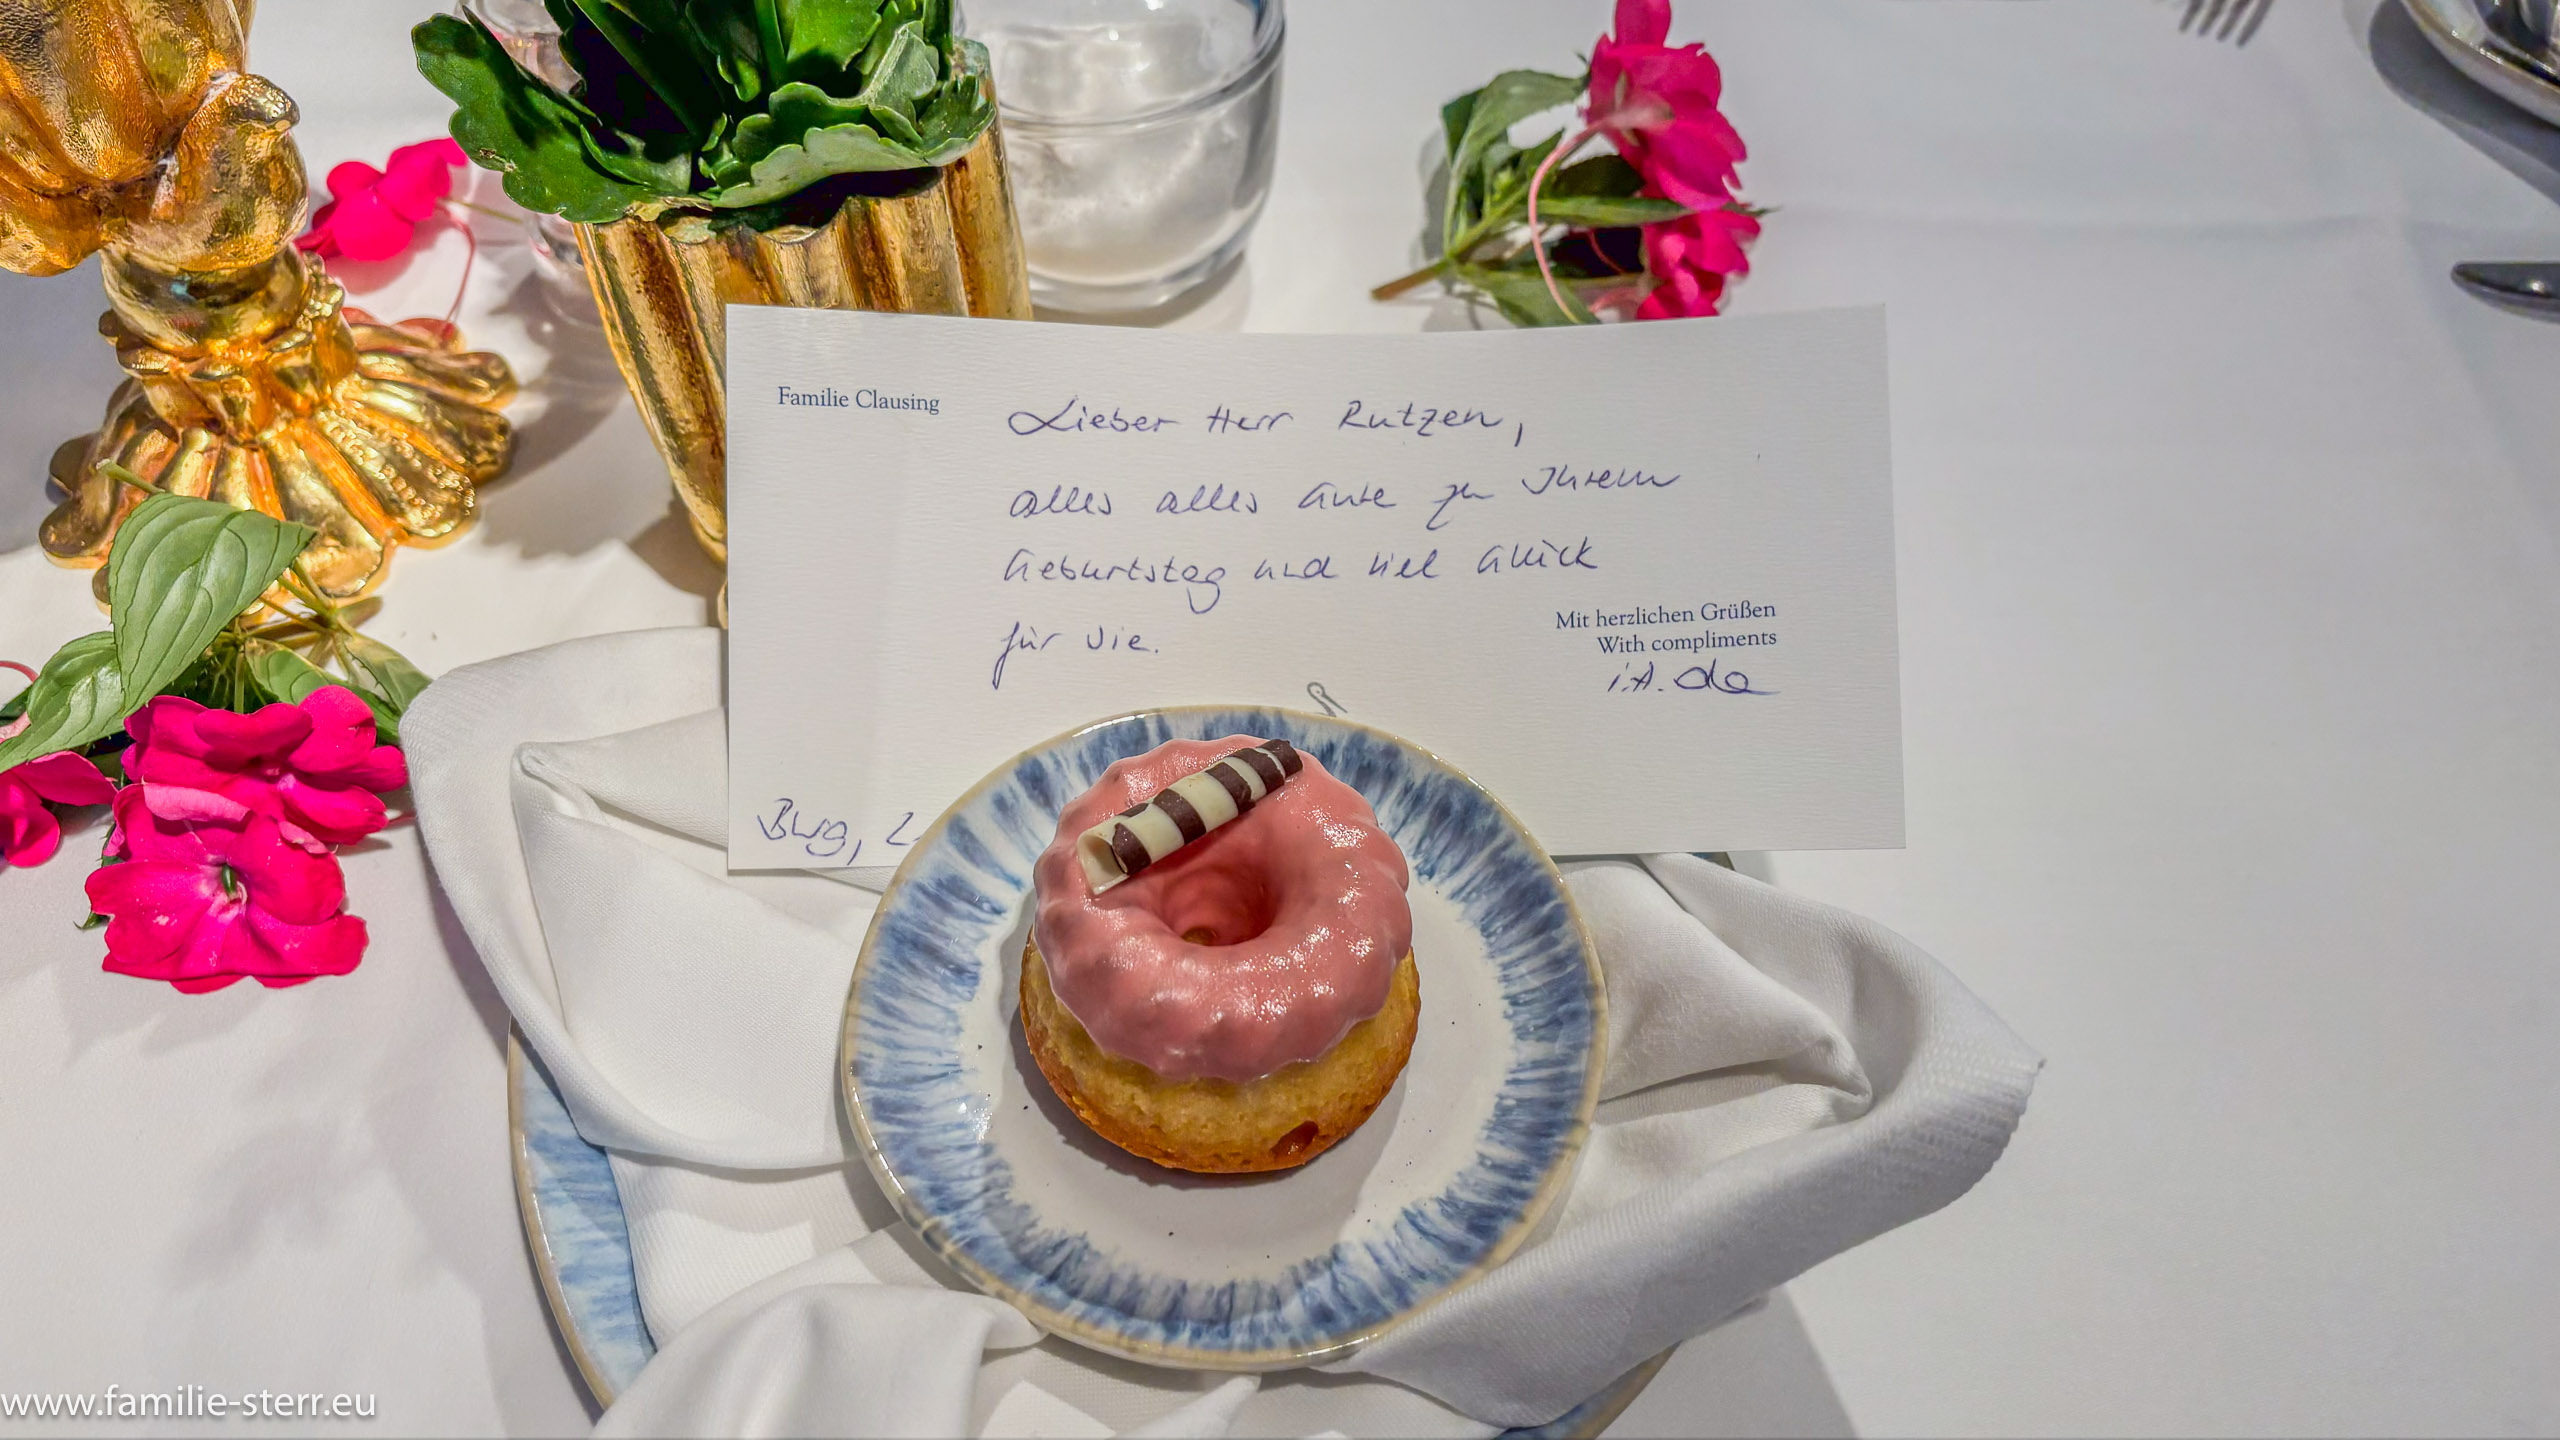 Familie Clausing
Lieber Herr Rutzen,
alles alles Gute zu Ihrem
Geburtstag und viel Glück
für Sie.
Mit herzlichen Grüßen
With compliments
i.A.
Burg,
www.familie-sterr.eu